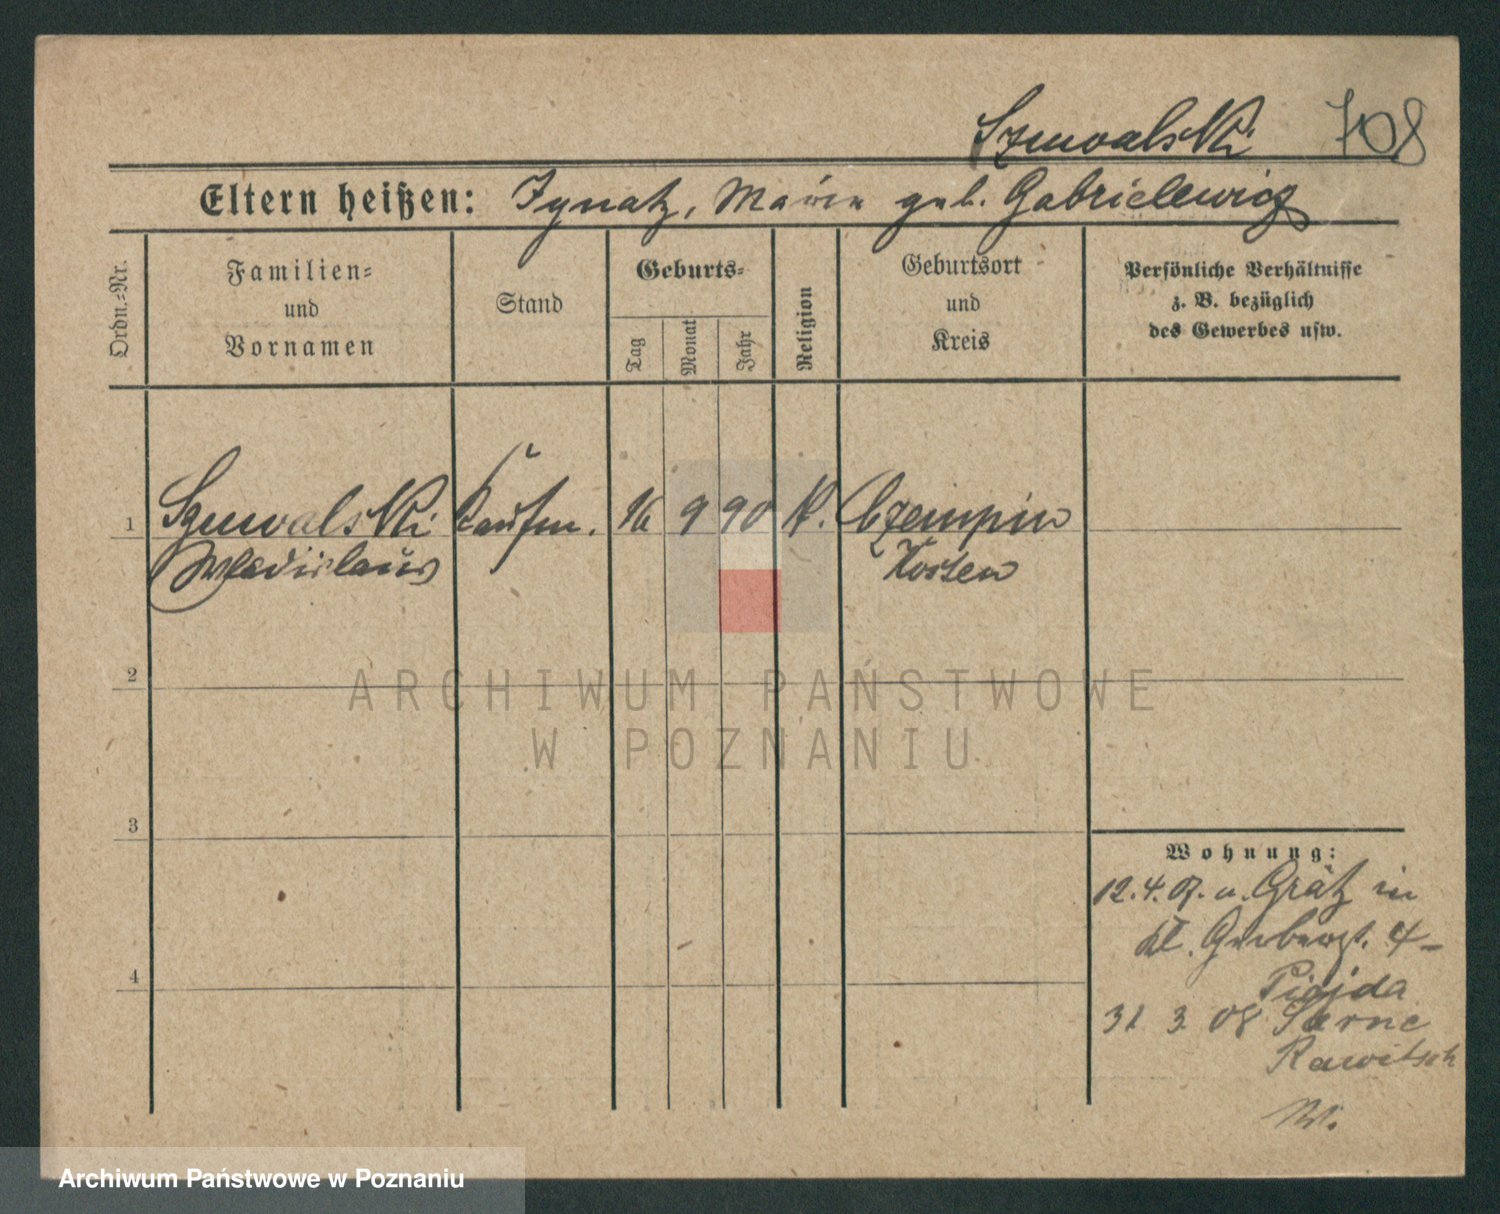 Szuwalski 708
Eltern heißen: Ignatz, Marie geb. Gabrielewicz
Ordn.-Nr.
Familien-
und
Vornamen
Stand
Geburts-
Tag
Monat
Jahr
Religion
Geburtsort
und
Kreis
Persönliche Verhältnisse
z. B. bezüglich
des Gewerbes usw.
1 Szuwalski Kaufm. 16 9 90 K. Czempin
Wladislaus Kosten
2
3
4
Wohnung:
12.4.07. v. Grätz in
kl. Gerberst. 4
31 3 08 Sarne
Rawitsch
ARCHIWUM PAŃSTWOWE
W POZNANIU
Archiwum Państwowe w Poznaniu